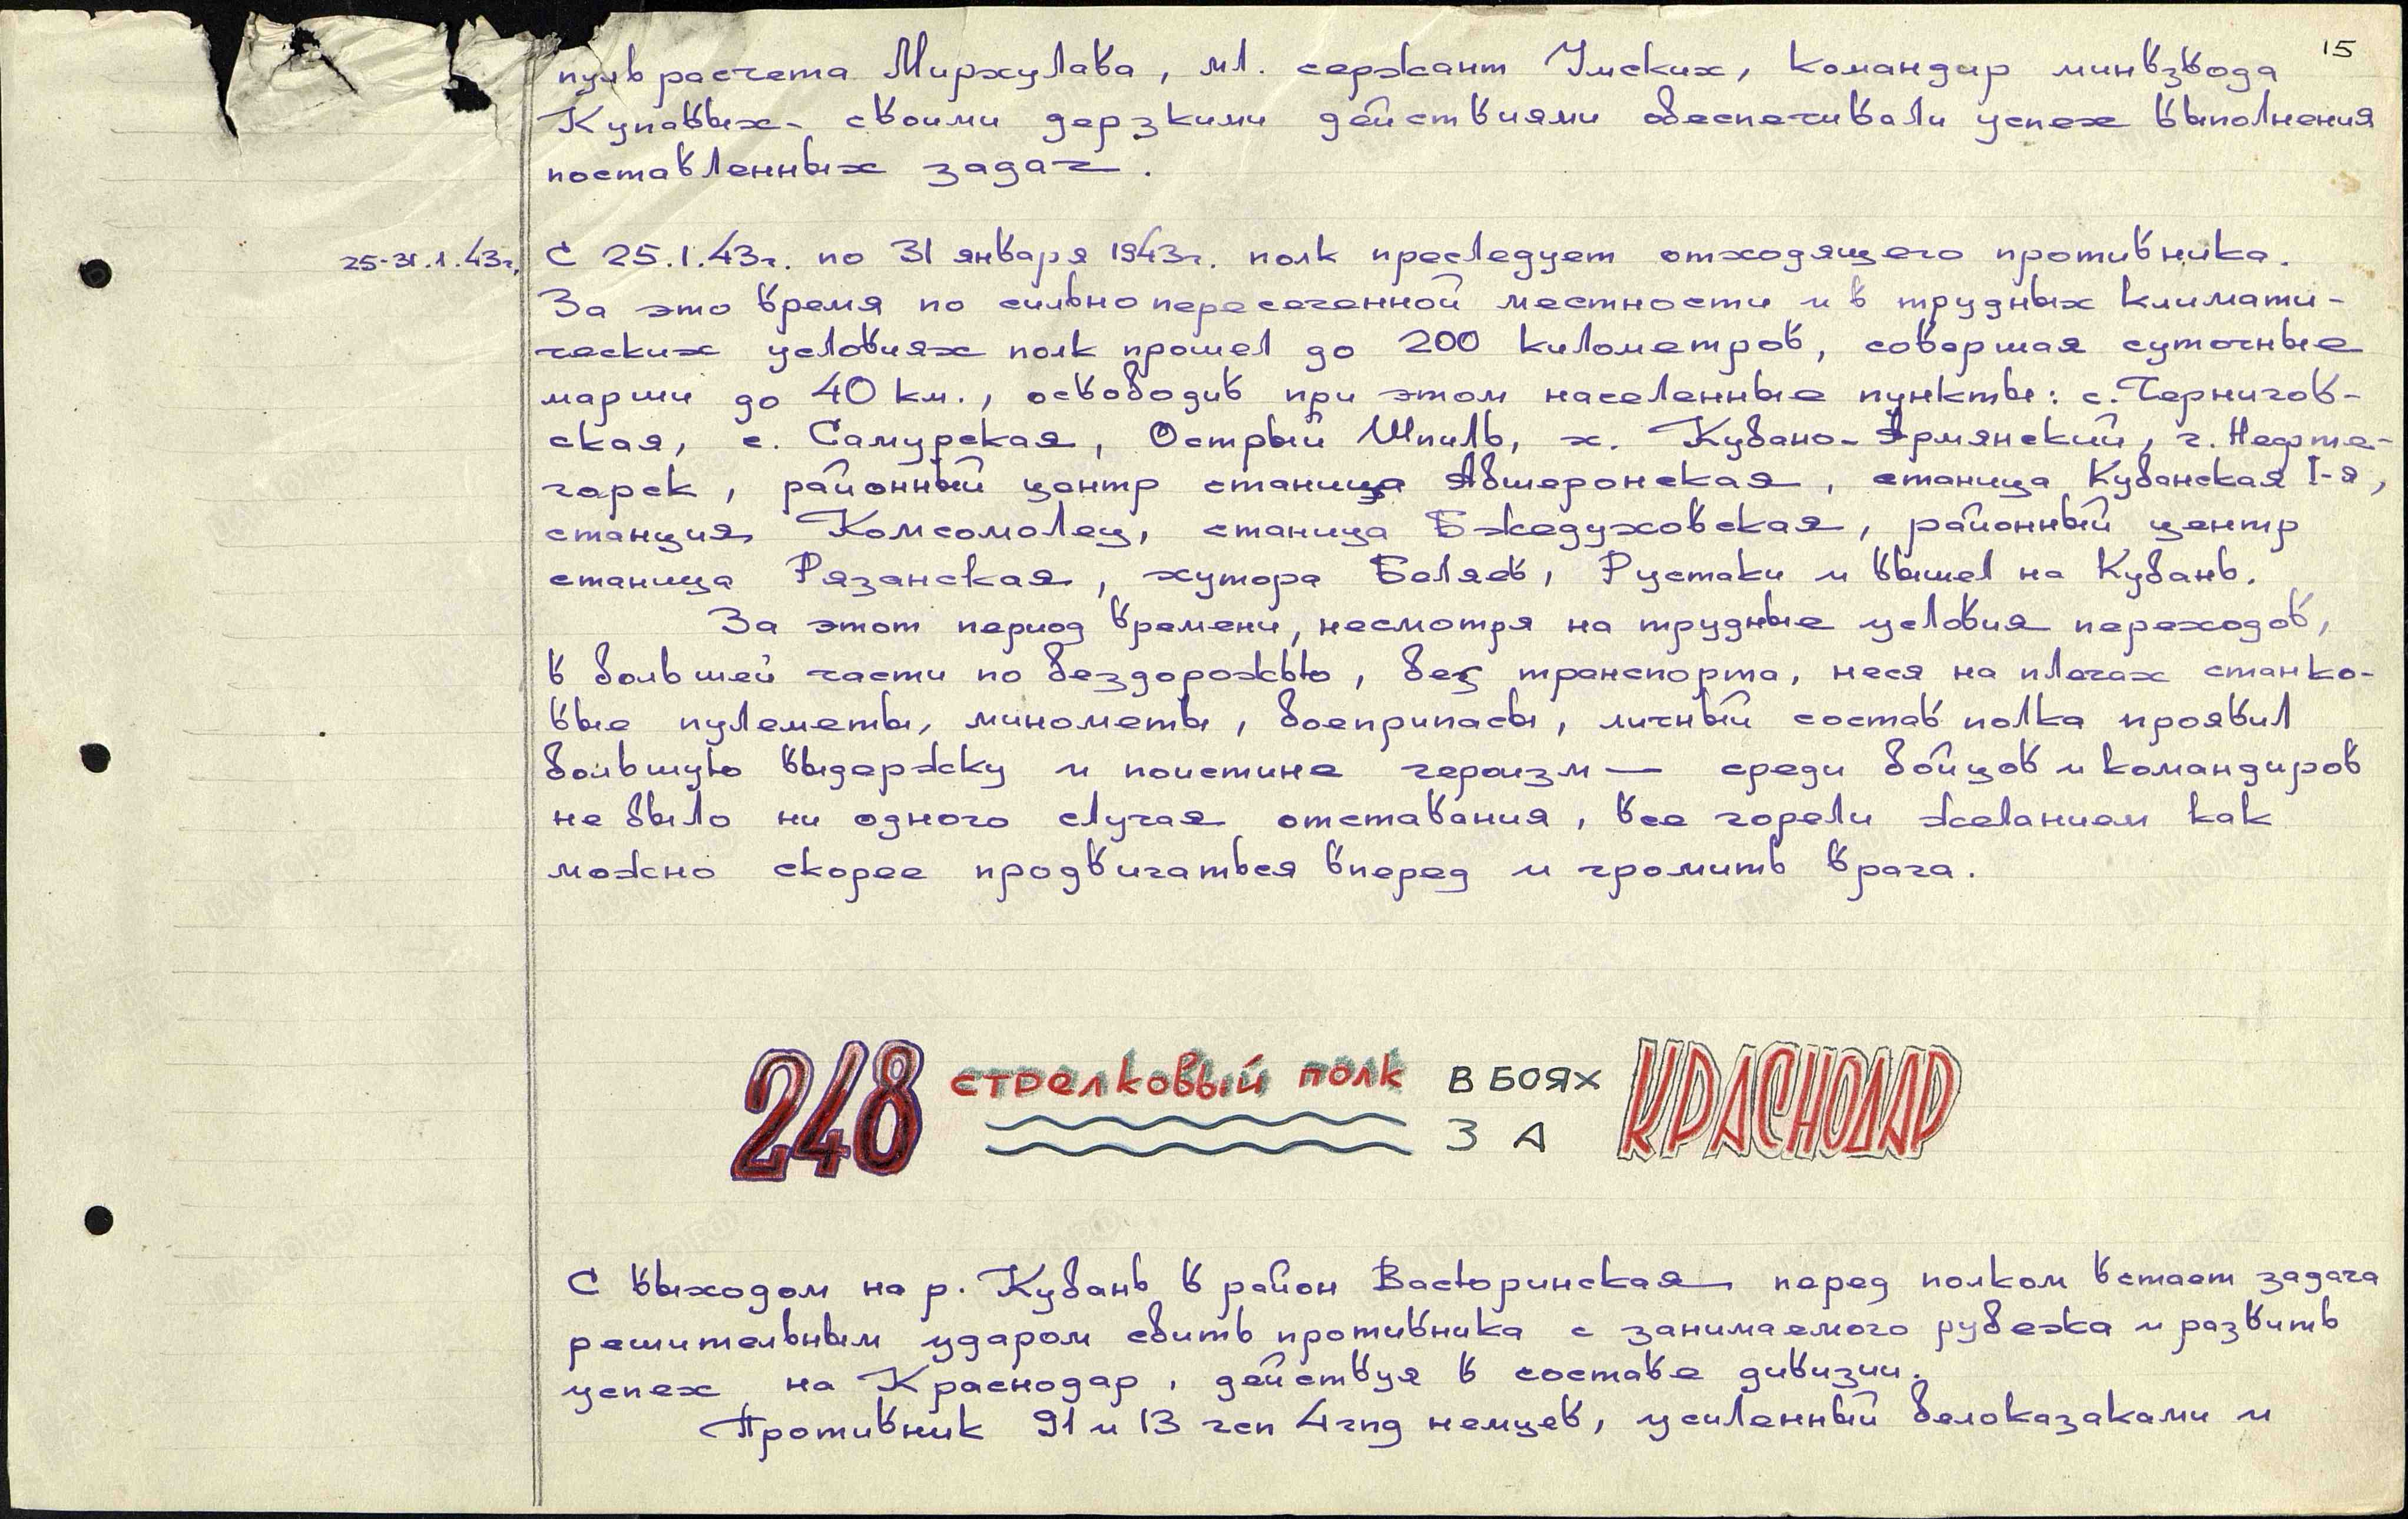 15
пульрасчета Мирхулава, мл. сержант Умских, командир минвзвода
Купавых - своими дерзкими действиями обеспечивали успех выполнения
поставленных задач.
25-31.1.43г.
С 25.1.43г. по 31 января 1943г. полк преследует отходящего противника.
За это время по сильно пересеченной местности и в трудных климати-
ческих условиях полк прошел до 200 километров, совершая суточные
марши до 40 км., освободив при этом населенные пункты: с. Чернигов-
ская, с. Самурская, Острый Шпиль, х. Кубано-Армянский, г. Нефте-
горск, районный центр станица Апшеронская, станица Кубанская I-я,
станция Комсомолец, станица Бжедуховская, районный центр
станица Рязанская, хутора Беляев, Рустаки и вышел на Кубань.
За этот период времени, несмотря на трудные условия переходов,
в большей части по бездорожью, без транспорта, неся на плечах станко-
вые пулеметы, минометы, боеприпасы, личный состав полка проявил
большую выдержку и поистине героизм — среди бойцов и командиров
не было ни одного случая отставания, все горели желанием как
можно скорее продвигаться вперед и громить врага.
248 стрелковый полк в боях
за КРАСНОДАР
С выходом на р. Кубань в район Васюринская перед полком встает задача
решительным ударом сбить противника с занимаемого рубежа и развить
успех на Краснодар, действуя в составе дивизии.
Противник 91 и 13 гсп 4гпд немцев, усиленный белоказаками и